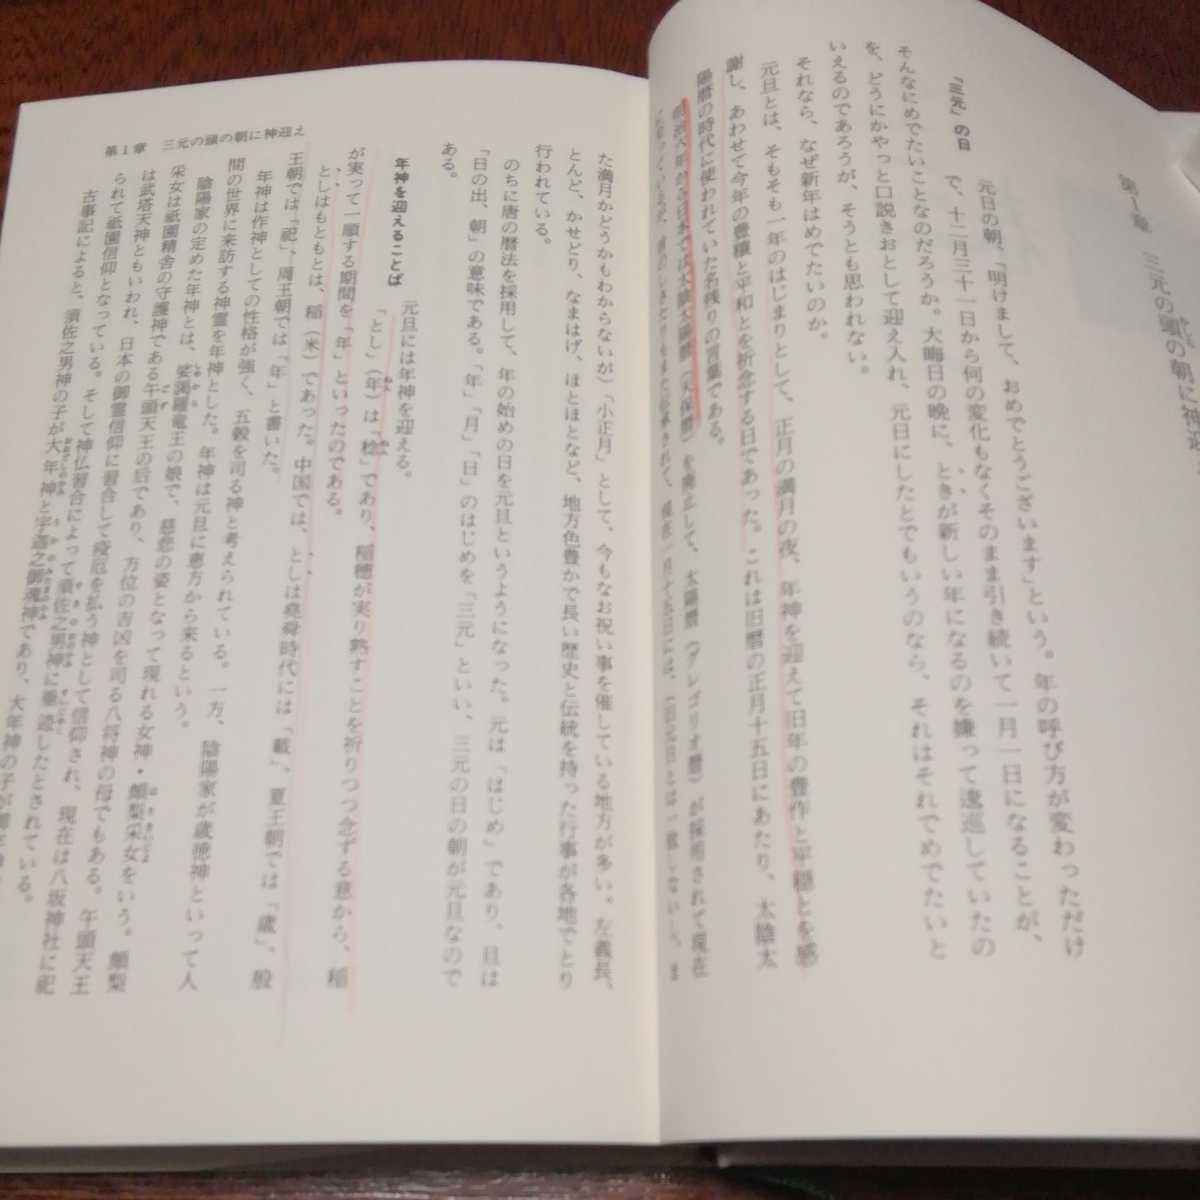 第1章　三元の頭の朝に神迎
「三元」の日
元日の朝、「明けまして、おめでとうございます」という。年の呼び方が変わっただけ
で、十二月三十一日から何の変化もなくそのまま引き続いて一月一日になることが、
そんなにめでたいことなのだろうか。大晦日の晩に、ときが新しい年になるのを嫌って逡巡していたの
を、どうにかやっと口説きおとして迎え入れ、元日にしたとでもいうのなら、それはそれでめでたいと
いえるのであろうが、そうとも思われない。
それなら、なぜ新年はめでたいのか。
元旦とは、そもそも一年のはじまりとして、正月の満月の夜、年神を迎えて旧年の豊作と平穏とを感
謝し、あわせて今年の豊穣と平和とを祈念する日であった。これは旧暦の正月十五日にあたり、太陰太
陽暦の時代に使われていた名残りの言葉である。
日本では太陰太陽暦（天保暦）を廃止して、太陽暦（グレゴリオ暦）が採用されて現在
現在一月十五日には、（旧元日とは一致しないし、ま
た満月かどうかもわからないが）「小正月」として、今もなお祝い事を催している地方が多い。左義長、
とんど、かせどり、なまはげ、ほとほとなど、地方色豊かで長い歴史と伝統を持った行事が各地でとり
行われている。
のちに唐の暦法を採用して、年の始めの日を元旦というようになった。元は「はじめ」であり、旦は
「日の出、朝」の意味である。「年」「月」「日」のはじめを「三元」といい、三元の日の朝が元旦なので
ある。
年神を迎えることば
元旦には年神を迎える。
「とし」（年）は「稔」であり、稲穂が実り熟すことを祈りつつ念ずる意から、稲
が実って一順する期間を「年」といったのである。
としはもともとは、稲（米）であった。中国では、としは堯舜時代には「載」、夏王朝では「歳」、殷
王朝では「祀」、周王朝では「年」と書いた。
年神は作神としての性格が強く、五穀を司る神と考えられている。一方、陰陽家が歳徳神といって人
間の世界に来訪する神霊を年神とした。年神は元旦に恵方から来るという。
陰陽家の定めた年神とは、娑竭羅竜王の娘で、慈悲の姿となって現れる女神・頗梨采女をいう。頗梨
采女は祇園精舎の守護神である午頭天王の后であり、方位の吉凶を司る八将神の母でもある。午頭天王
は武塔天神ともいわれ、日本の御霊信仰に習合して疫厄を払う神として信仰され、現在は八坂神社に祀
られて祇園信仰となっている。そして神仏習合によって須佐之男神に垂迹したとされている。
古事記によると、須佐之男神の子が大年神と宇迦之御魂神であり、大年神の子が
第1章　三元の頭の朝に神迎え